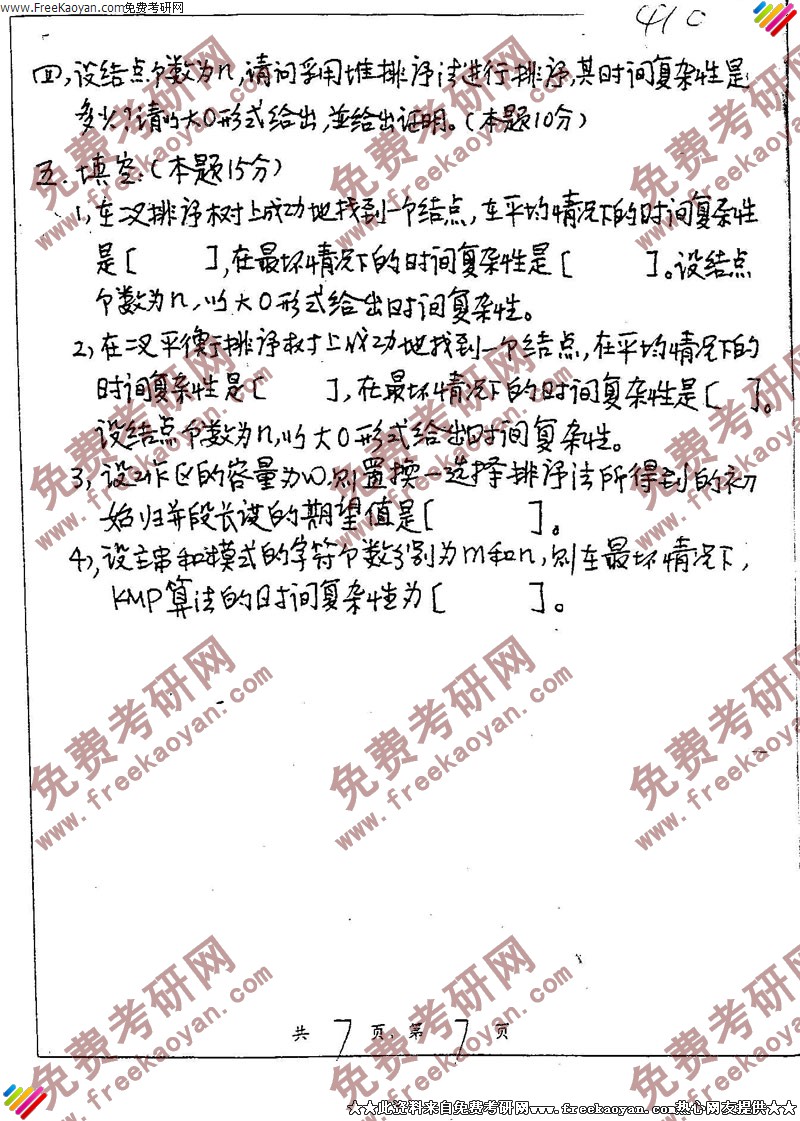 www.FreeKaoyan.com免费考研网
410
四,设结点个数为n,请问采用堆排序法进行排序,其时间复杂性是
多少?请以大O形式给出,並给出证明。(本题10分)
五.填空:(本题15分)
1,在二叉排序树上成功地找到一个结点,在平均情况下的时间复杂性
是[ ],在最坏情况下的时间复杂性是[ ]。设结点
个数为n,以大O形式给出时间复杂性。
2,在二叉平衡排序树上成功地找到一个结点,在平均情况下的
时间复杂性是[ ],在最坏情况下的时间复杂性是[ ]。
设结点个数为n,以大O形式给出时间复杂性。
3,设工作区的容量为W,则置换一选择排序法所得到的初
始归并段长度的期望值是[ ]。
4,设主串和模式的字符个数分别为m和n,则在最坏情况下,
KMP算法的时间复杂性为[ ]。
共 7 页,第 7 页
★★此资料来自免费考研网www.freekaoyan.com热心网友提供★★
免费考研网
www.freekaoyan.com